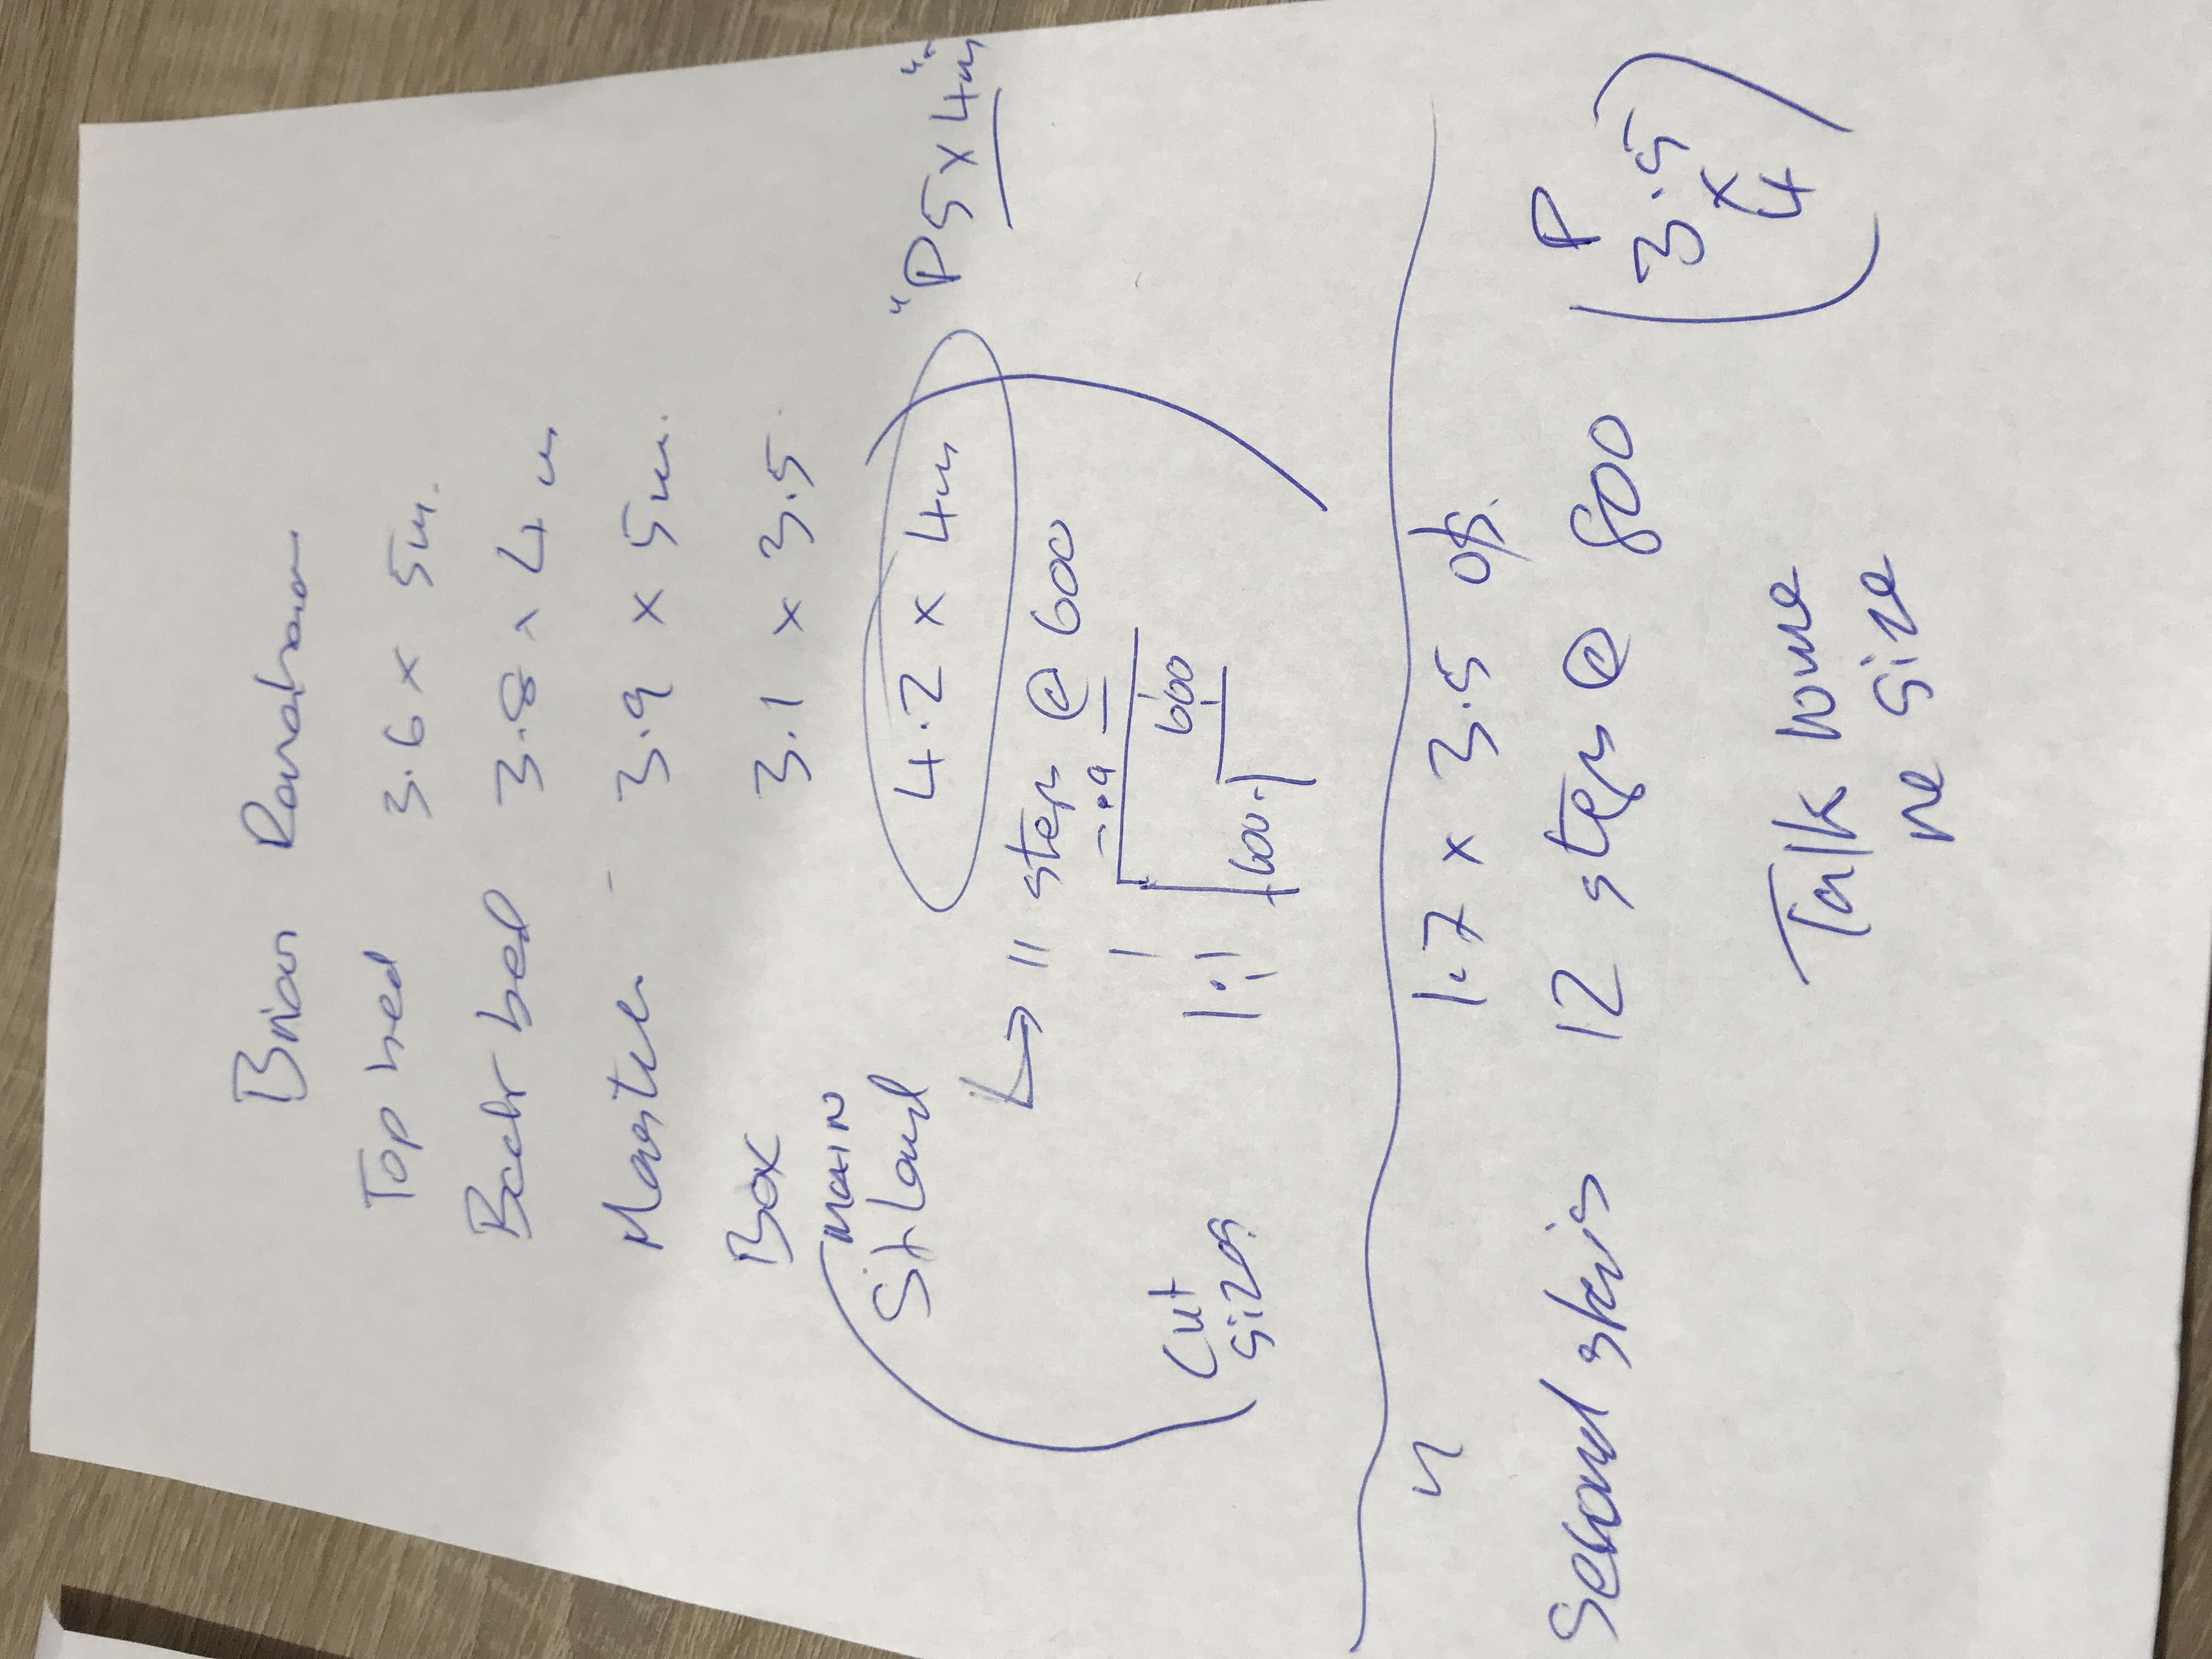 Brian
Top bed 3.6 x 5m.
Back bed 3.8 x 4m
Master - 3.9 x 5m.
Box 3.1 x 3.5
main
St Land 4.2 x 4m "P5 x 4m"
11 step @ 600
1.9
Cut sizes
1.1
600
600
1.7 x 3.5 o/s.
Second stairs 12 step @ 800
P
(3.5 x 4)
Talk
re size